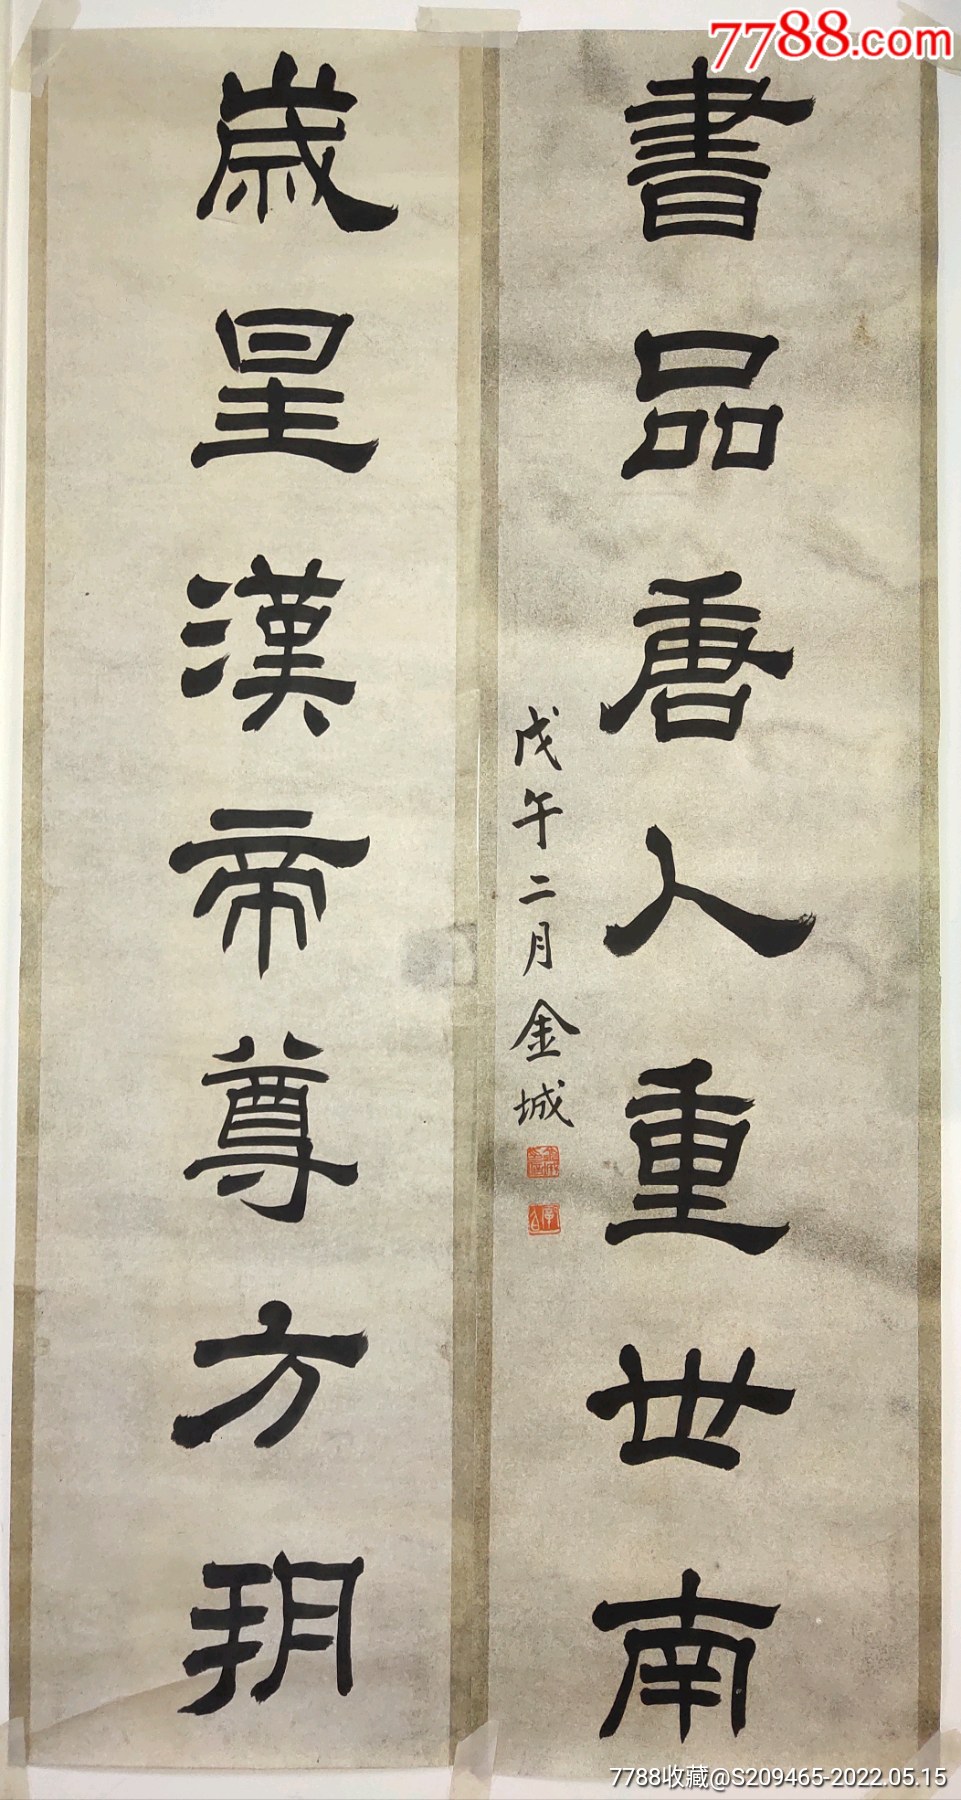 7788.com
書品唐人重世南
戊午二月金城
歲星漢帝尊方朔
7788收藏@S209465-2022.05.15